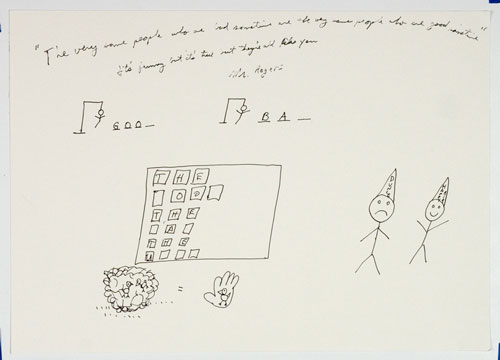 "The very same people who are bad sometime are the very same people who are good sometime"
It's funny but it's true but they're all like you
Mr. Rogers
GOO_ BA_
THE
OO
THE
A
THE
U
=